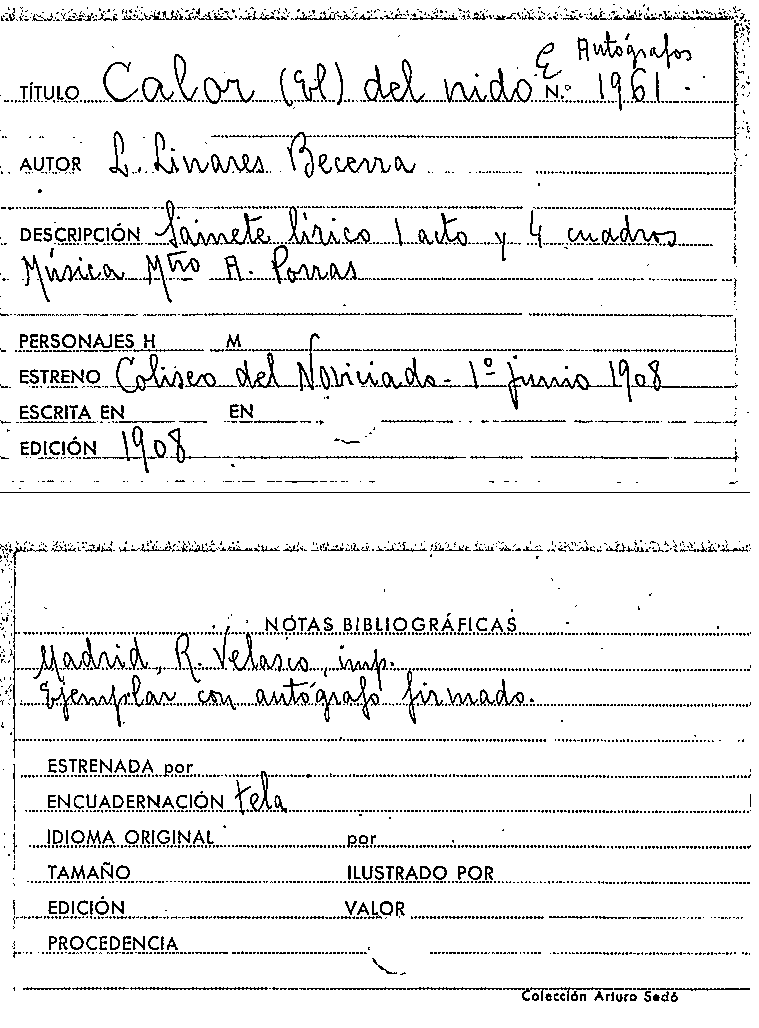 E Autógrafos
TÍTULO Calor (El) del nido N.º 1961.
AUTOR L. Linares Becerra
DESCRIPCIÓN Sainete lírico 1 acto y 4 cuadros
Música Mtro A. Porras
PERSONAJES H M
ESTRENO Coliseo del Noviciado - 1º junio 1908
ESCRITA EN EN
EDICIÓN 1908
NOTAS BIBLIOGRÁFICAS
Madrid, R. Velasco, imp.
Ejemplar con autógrafo firmado.
ESTRENADA por
ENCUADERNACIÓN tela
IDIOMA ORIGINAL por
TAMAÑO ILUSTRADO POR
EDICIÓN VALOR
PROCEDENCIA
Colección Arturo Sedó